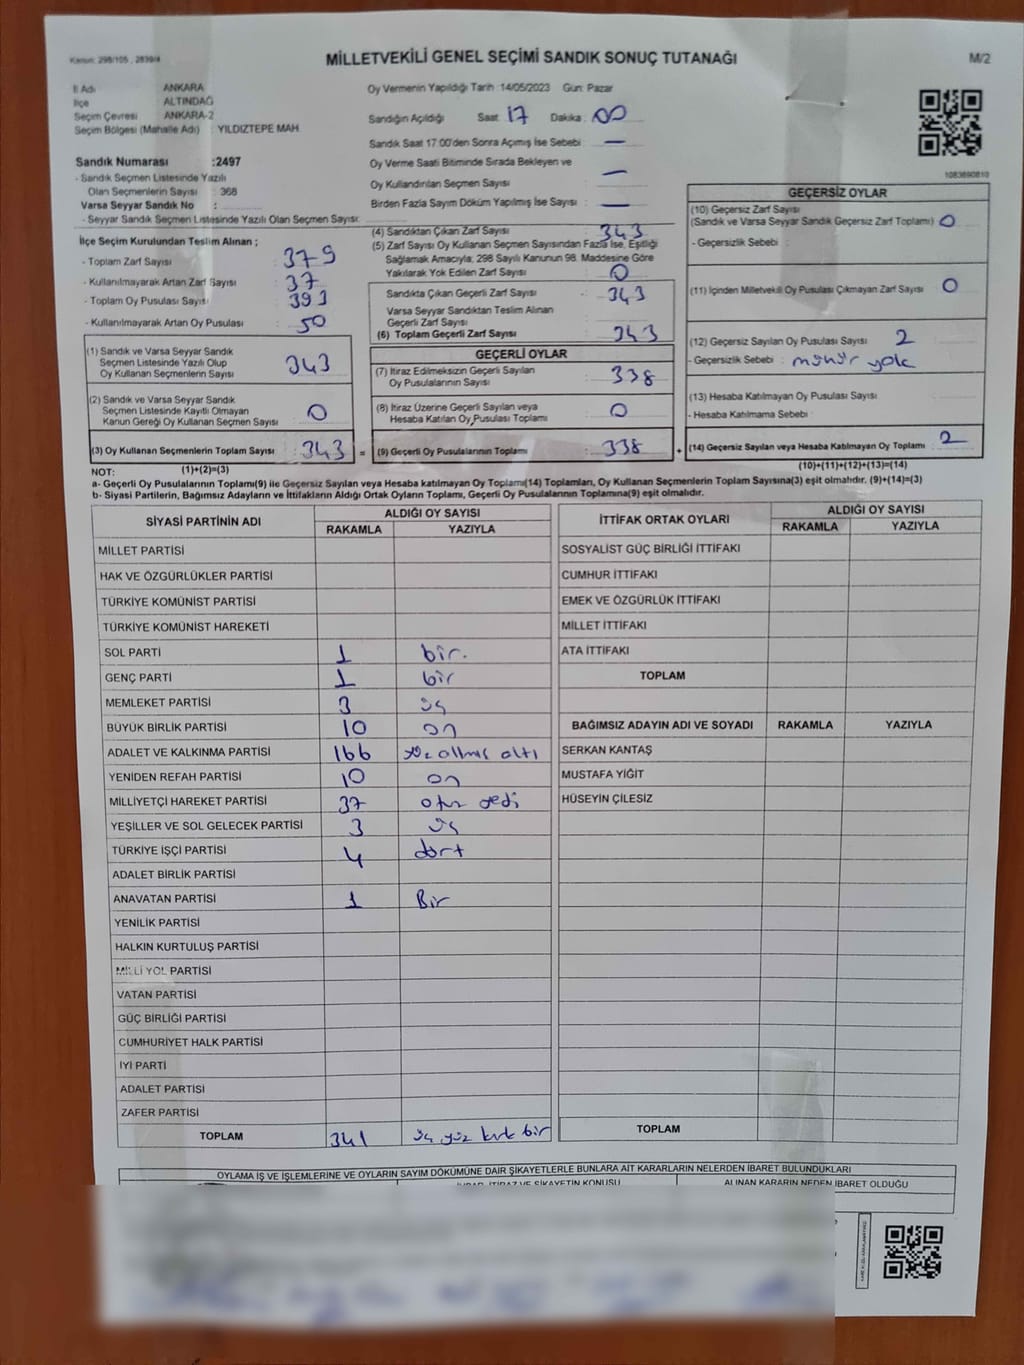 Kanun: 298/105 , 2839/4
MİLLETVEKİLİ GENEL SEÇİMİ SANDIK SONUÇ TUTANAĞI
M/2
İl Adı ANKARA
İlçe ALTINDAĞ
Seçim Çevresi ANKARA-2
Seçim Bölgesi (Mahalle Adı) : YILDIZTEPE MAH.
Sandık Numarası :2497
- Sandık Seçmen Listesinde Yazılı
Olan Seçmenlerin Sayısı : 368
Varsa Seyyar Sandık No :
- Seyyar Sandık Seçmen Listesinde Yazılı Olan Seçmen Sayısı:
Oy Vermenin Yapıldığı Tarih :14/05/2023 Gün: Pazar
Sandığın Açıldığı Saat: 17 Dakika : 00
Sandık Saat 17:00'den Sonra Açımış İse Sebebi : —
Oy Verme Saati Bitiminde Sırada Bekleyen ve
Oy Kullandırılan Seçmen Sayısı : —
Birden Fazla Sayım Döküm Yapılmış İse Sayısı : —
1083690810
İlçe Seçim Kurulundan Teslim Alınan ;
- Toplam Zarf Sayısı : 379
- Kullanılmayarak Artan Zarf Sayısı : 37
- Toplam Oy Pusulası Sayısı : 393
- Kullanılmayarak Artan Oy Pusulası : 50
(1) Sandık ve Varsa Seyyar Sandık
Seçmen Listesinde Yazılı Olup
Oy Kullanan Seçmenlerin Sayısı : 343
(2) Sandık ve Varsa Seyyar Sandık
Seçmen Listesinde Kayıtlı Olmayan
Kanun Gereği Oy Kullanan Seçmen Sayısı : 0
(3) Oy Kullanan Seçmenlerin Toplam Sayısı : 343 =
(4) Sandıktan Çıkan Zarf Sayısı : 343
(5) Zarf Sayısı Oy Kullanan Seçmen Sayısından Fazla İse, Eşitliği
Sağlamak Amacıyla; 298 Sayılı Kanunun 98. Maddesine Göre
Yakılarak Yok Edilen Zarf Sayısı : 0
Sandıkta Çıkan Geçerli Zarf Sayısı : 343
Varsa Seyyar Sandıktan Teslim Alınan
Geçerli Zarf Sayısı :
(6) Toplam Geçerli Zarf Sayısı : 343
GEÇERLİ OYLAR
(7) İtiraz Edilmeksizin Geçerli Sayılan
Oy Pusulalarının Sayısı : 338
(8) İtiraz Üzerine Geçerli Sayılan veya
Hesaba Katılan Oy Pusulası Toplamı : 0
(9) Geçerli Oy Pusulalarının Toplamı : 338 +
GEÇERSİZ OYLAR
(10) Geçersiz Zarf Sayısı
(Sandık ve Varsa Seyyar Sandık Geçersiz Zarf Toplamı) : 0
- Geçersizlik Sebebi :
(11) İçinden Milletvekili Oy Pusulası Çıkmayan Zarf Sayısı : 0
(12) Geçersiz Sayılan Oy Pusulası Sayısı : 2
- Geçersizlik Sebebi : mühür yok
(13) Hesaba Katılmayan Oy Pusulası Sayısı :
- Hesaba Katılmama Sebebi :
(14) Geçersiz Sayılan veya Hesaba Katılmayan Oy Toplamı : 2
NOT: (1)+(2)=(3) (10)+(11)+(12)+(13)=(14)
a- Geçerli Oy Pusulalarının Toplamı(9) ile Geçersiz Sayılan veya Hesaba katılmayan Oy Toplamı(14) Toplamları, Oy Kullanan Seçmenlerin Toplam Sayısına(3) eşit olmalıdır. (9)+(14)=(3)
b- Siyasi Partilerin, Bağımsız Adayların ve İttifakların Aldığı Ortak Oyların Toplamı, Geçerli Oy Pusulalarının Toplamına(9) eşit olmalıdır.
SİYASİ PARTİNİN ADI ALDIĞI OY SAYISI
RAKAMLA YAZIYLA
MİLLET PARTİSİ
HAK VE ÖZGÜRLÜKLER PARTİSİ
TÜRKİYE KOMÜNİST PARTİSİ
TÜRKİYE KOMÜNİST HAREKETİ
SOL PARTİ 1 bir.
GENÇ PARTİ 1 bir
MEMLEKET PARTİSİ 3 üç
BÜYÜK BİRLİK PARTİSİ 10 on
ADALET VE KALKINMA PARTİSİ 166 yüz altmış altı
YENİDEN REFAH PARTİSİ 10 on
MİLLİYETÇİ HAREKET PARTİSİ 37 otuz yedi
YEŞİLLER VE SOL GELECEK PARTİSİ 3 üç
TÜRKİYE İŞÇİ PARTİSİ 4 dört
ADALET BİRLİK PARTİSİ
ANAVATAN PARTİSİ 1 Bir
YENİLİK PARTİSİ
HALKIN KURTULUŞ PARTİSİ
MİLLİ YOL PARTİSİ
VATAN PARTİSİ
GÜÇ BİRLİĞİ PARTİSİ
CUMHURİYET HALK PARTİSİ
İYİ PARTİ
ADALET PARTİSİ
ZAFER PARTİSİ
TOPLAM 341 üç yüz kırk bir
İTTİFAK ORTAK OYLARI ALDIĞI OY SAYISI
RAKAMLA YAZIYLA
SOSYALİST GÜÇ BİRLİĞİ İTTİFAKI
CUMHUR İTTİFAKI
EMEK VE ÖZGÜRLÜK İTTİFAKI
MİLLET İTTİFAKI
ATA İTTİFAKI
TOPLAM
BAĞIMSIZ ADAYIN ADI VE SOYADI RAKAMLA YAZIYLA
SERKAN KANTAŞ
MUSTAFA YİĞİT
HÜSEYİN ÇİLESİZ
TOPLAM
OYLAMA İŞ VE İŞLEMLERİNE VE OYLARIN SAYIM DÖKÜMÜNE DAİR ŞİKAYETLERLE BUNLARA AİT KARARLARIN NELERDEN İBARET BULUNDUKLARI
İTİRAZ VE ŞİKAYETİN KONUSU ALINAN KARARIN NEDEN İBARET OLDUĞU